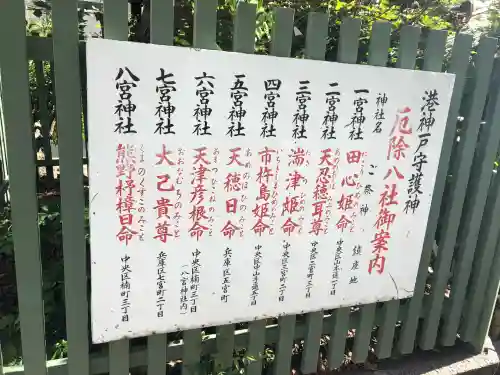 港神戸守護神
厄除八社御案内
神社名
ご祭神
鎮座地
一宮神社 田心姫命 中央区山本通一丁目
二宮神社 天忍穂耳尊 中央区二宮町三丁目
三宮神社 湍津姫命 中央区三宮町二丁目
四宮神社 市杵島姫命 中央区中山手通五丁目
五宮神社 天穂日命 兵庫区五宮町
六宮神社 天津彦根命 中央区楠町三丁目
(八宮神社内)
七宮神社 大己貴尊 兵庫区七宮町二丁目
八宮神社 熊野杼樟日命 中央区楠町三丁目